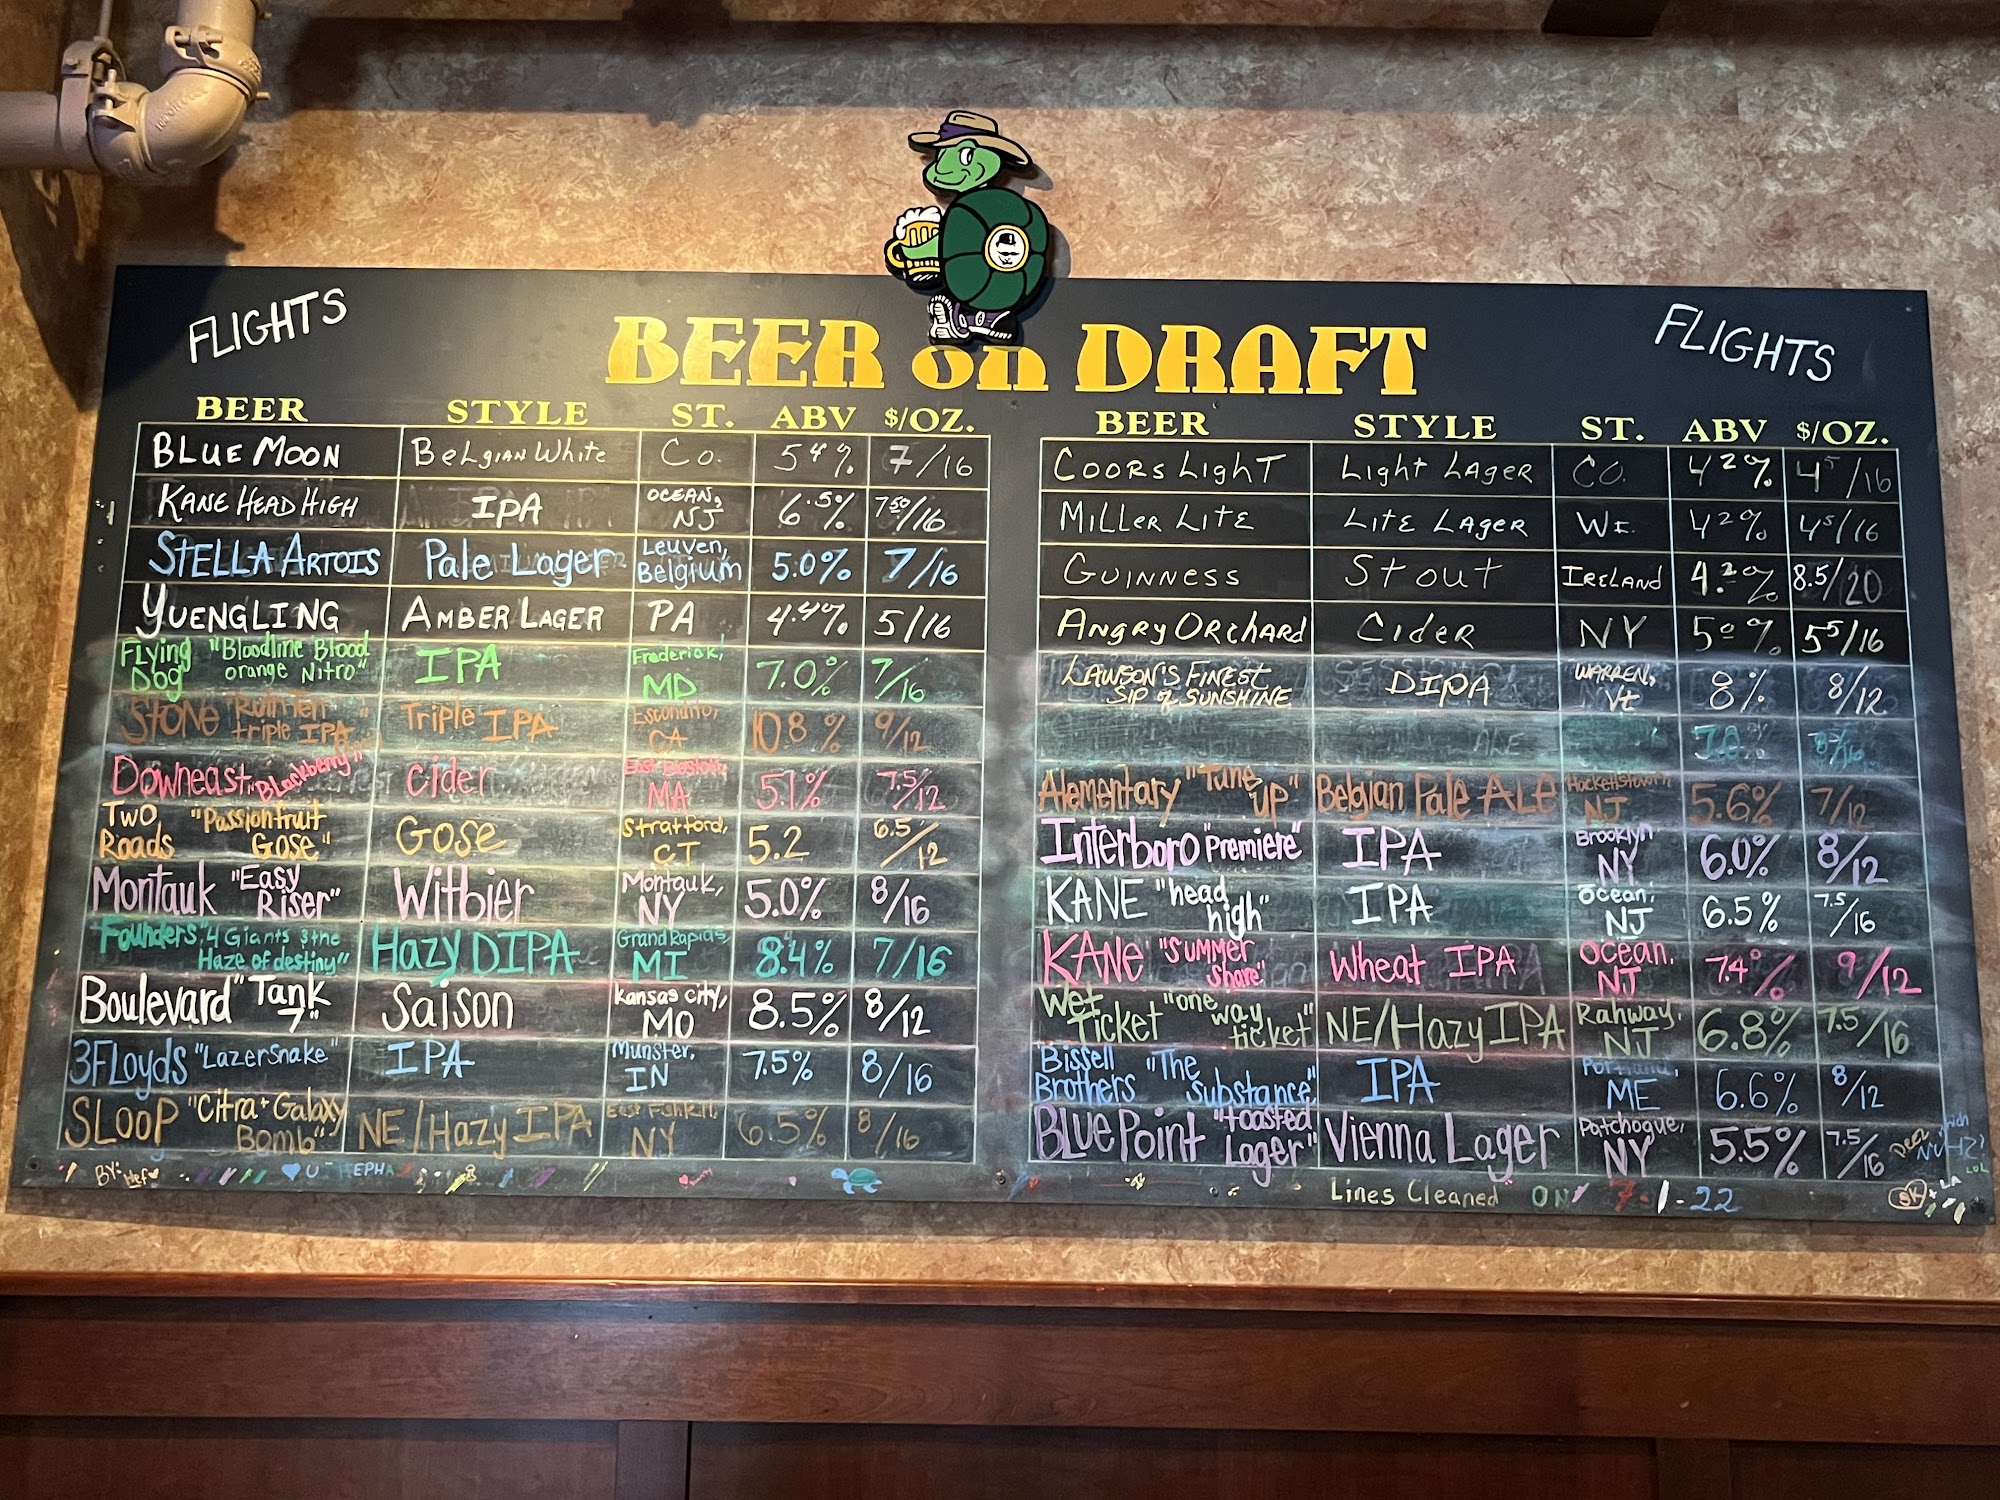 FLIGHTS
BEER on DRAFT
FLIGHTS
BEER STYLE ST. ABV $/OZ.
BLUE MOON BELGIAN WHITE CO. 5.4% 7/16
KANE HEAD HIGH IPA OCEAN, NJ 6.5% 7.50/16
STELLA ARTOIS Pale Lager Leuven, Belgium 5.0% 7/16
YUENGLING AMBER LAGER PA 4.4% 5/16
Flying Dog "Bloodline Blood orange Nitro" IPA Frederick, MD 7.0% 7/16
STONE "Ruin Ten triple IPA" Triple IPA Escondito, CA 10.8% 9/12
Downeast "Blackberry" cider East Boston, MA 5.1% 7.5/12
Two Roads "Passionfruit Gose" Gose Stratford, CT 5.2 6.5/12
Montauk "Easy Riser" Witbier Montauk, NY 5.0% 8/16
Founders "4 Giants & the Haze of destiny" Hazy DIPA Grand Rapids, MI 8.4% 7/16
Boulevard "Tank 7" Saison Kansas city, MO 8.5% 8/12
3FLoyds "Lazersnake" IPA Munster, IN 7.5% 8/16
SLOOP "Citra + Galaxy Bomb" NE/Hazy IPA East Fishkill, NY 6.5% 8/16
BY: Hef
BEER STYLE ST. ABV $/OZ.
COORS LIGHT LIGHT LAGER CO. 4.2% 4.5/16
MILLER LITE LITE LAGER WI. 4.2% 4.5/16
GUINNESS STOUT IRELAND 4.2% 8.5/20
ANGRY ORCHARD CIDER NY 5.0% 5.5/16
LAWSON'S FINEST SIP of SUNSHINE DIPA WARREN, Vt 8% 8/12
ALE
Alementary "Tune up" Belgian Pale ALE Hackettstown NJ 5.6% 7/12
Interboro "Premiere" IPA Brooklyn NY 6.0% 8/12
KANE "head high" IPA Ocean, NJ 6.5% 7.5/16
KANE "SUMMER Share" Wheat IPA Ocean, NJ 7.4% 9/12
Wet Ticket "one way ticket" NE/Hazy IPA Rahway, NJ 6.8% 7.5/16
Bissell Brothers "The Substance" IPA Portland, ME 6.6% 8/12
BLUE Point "toasted Lager" Vienna Lager Patchogue, NY 5.5% 7.5/16
Lines Cleaned ON 7-1-22
SK + LA
LOL